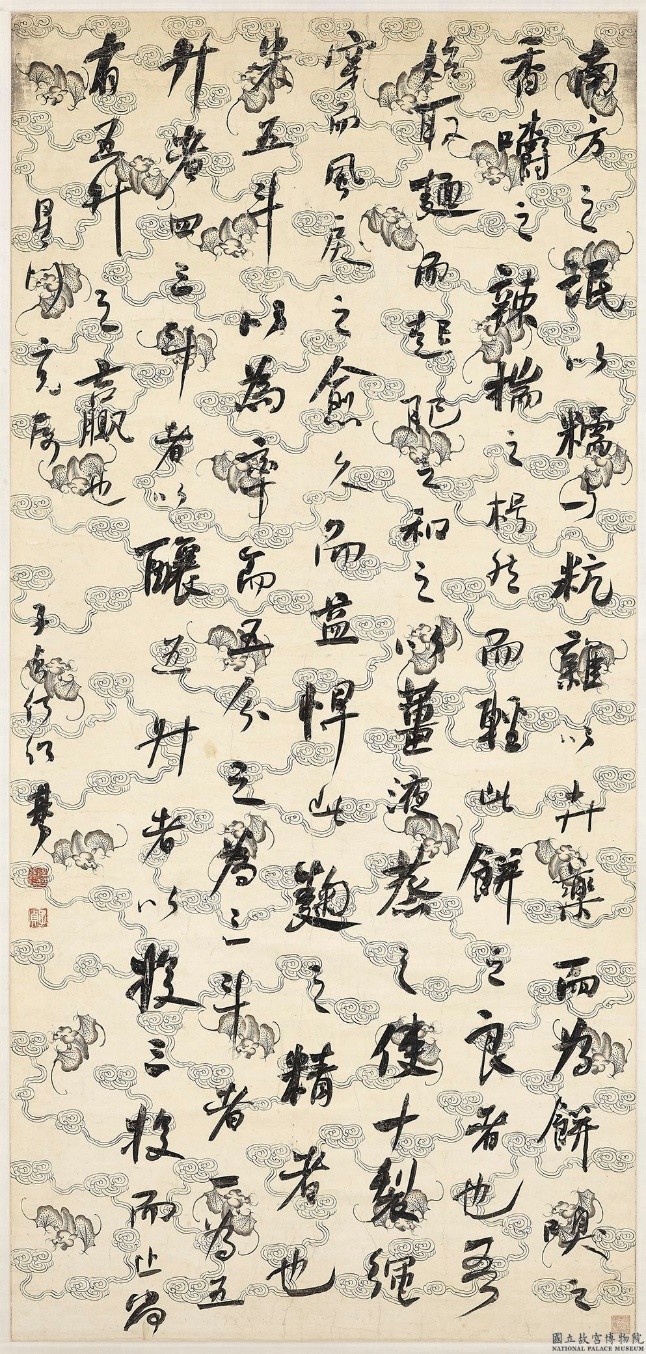 南方之氓以糯与粇雜以卉藥而為餅嗅之
香嚼之辣揣之枵然而輕此餅之良者也吾
始取麵而起肥之和之以薑液蒸之使十裂繩
穿而風戾之愈久而益悍此麴之精者也
米五斗以為率而五分之為三斗者一為五
升者四三斗者以釀五升者以投三投而止尚
有五升之贏也
子貞何紹基
國立故宮博物院
NATIONAL PALACE MUSEUM